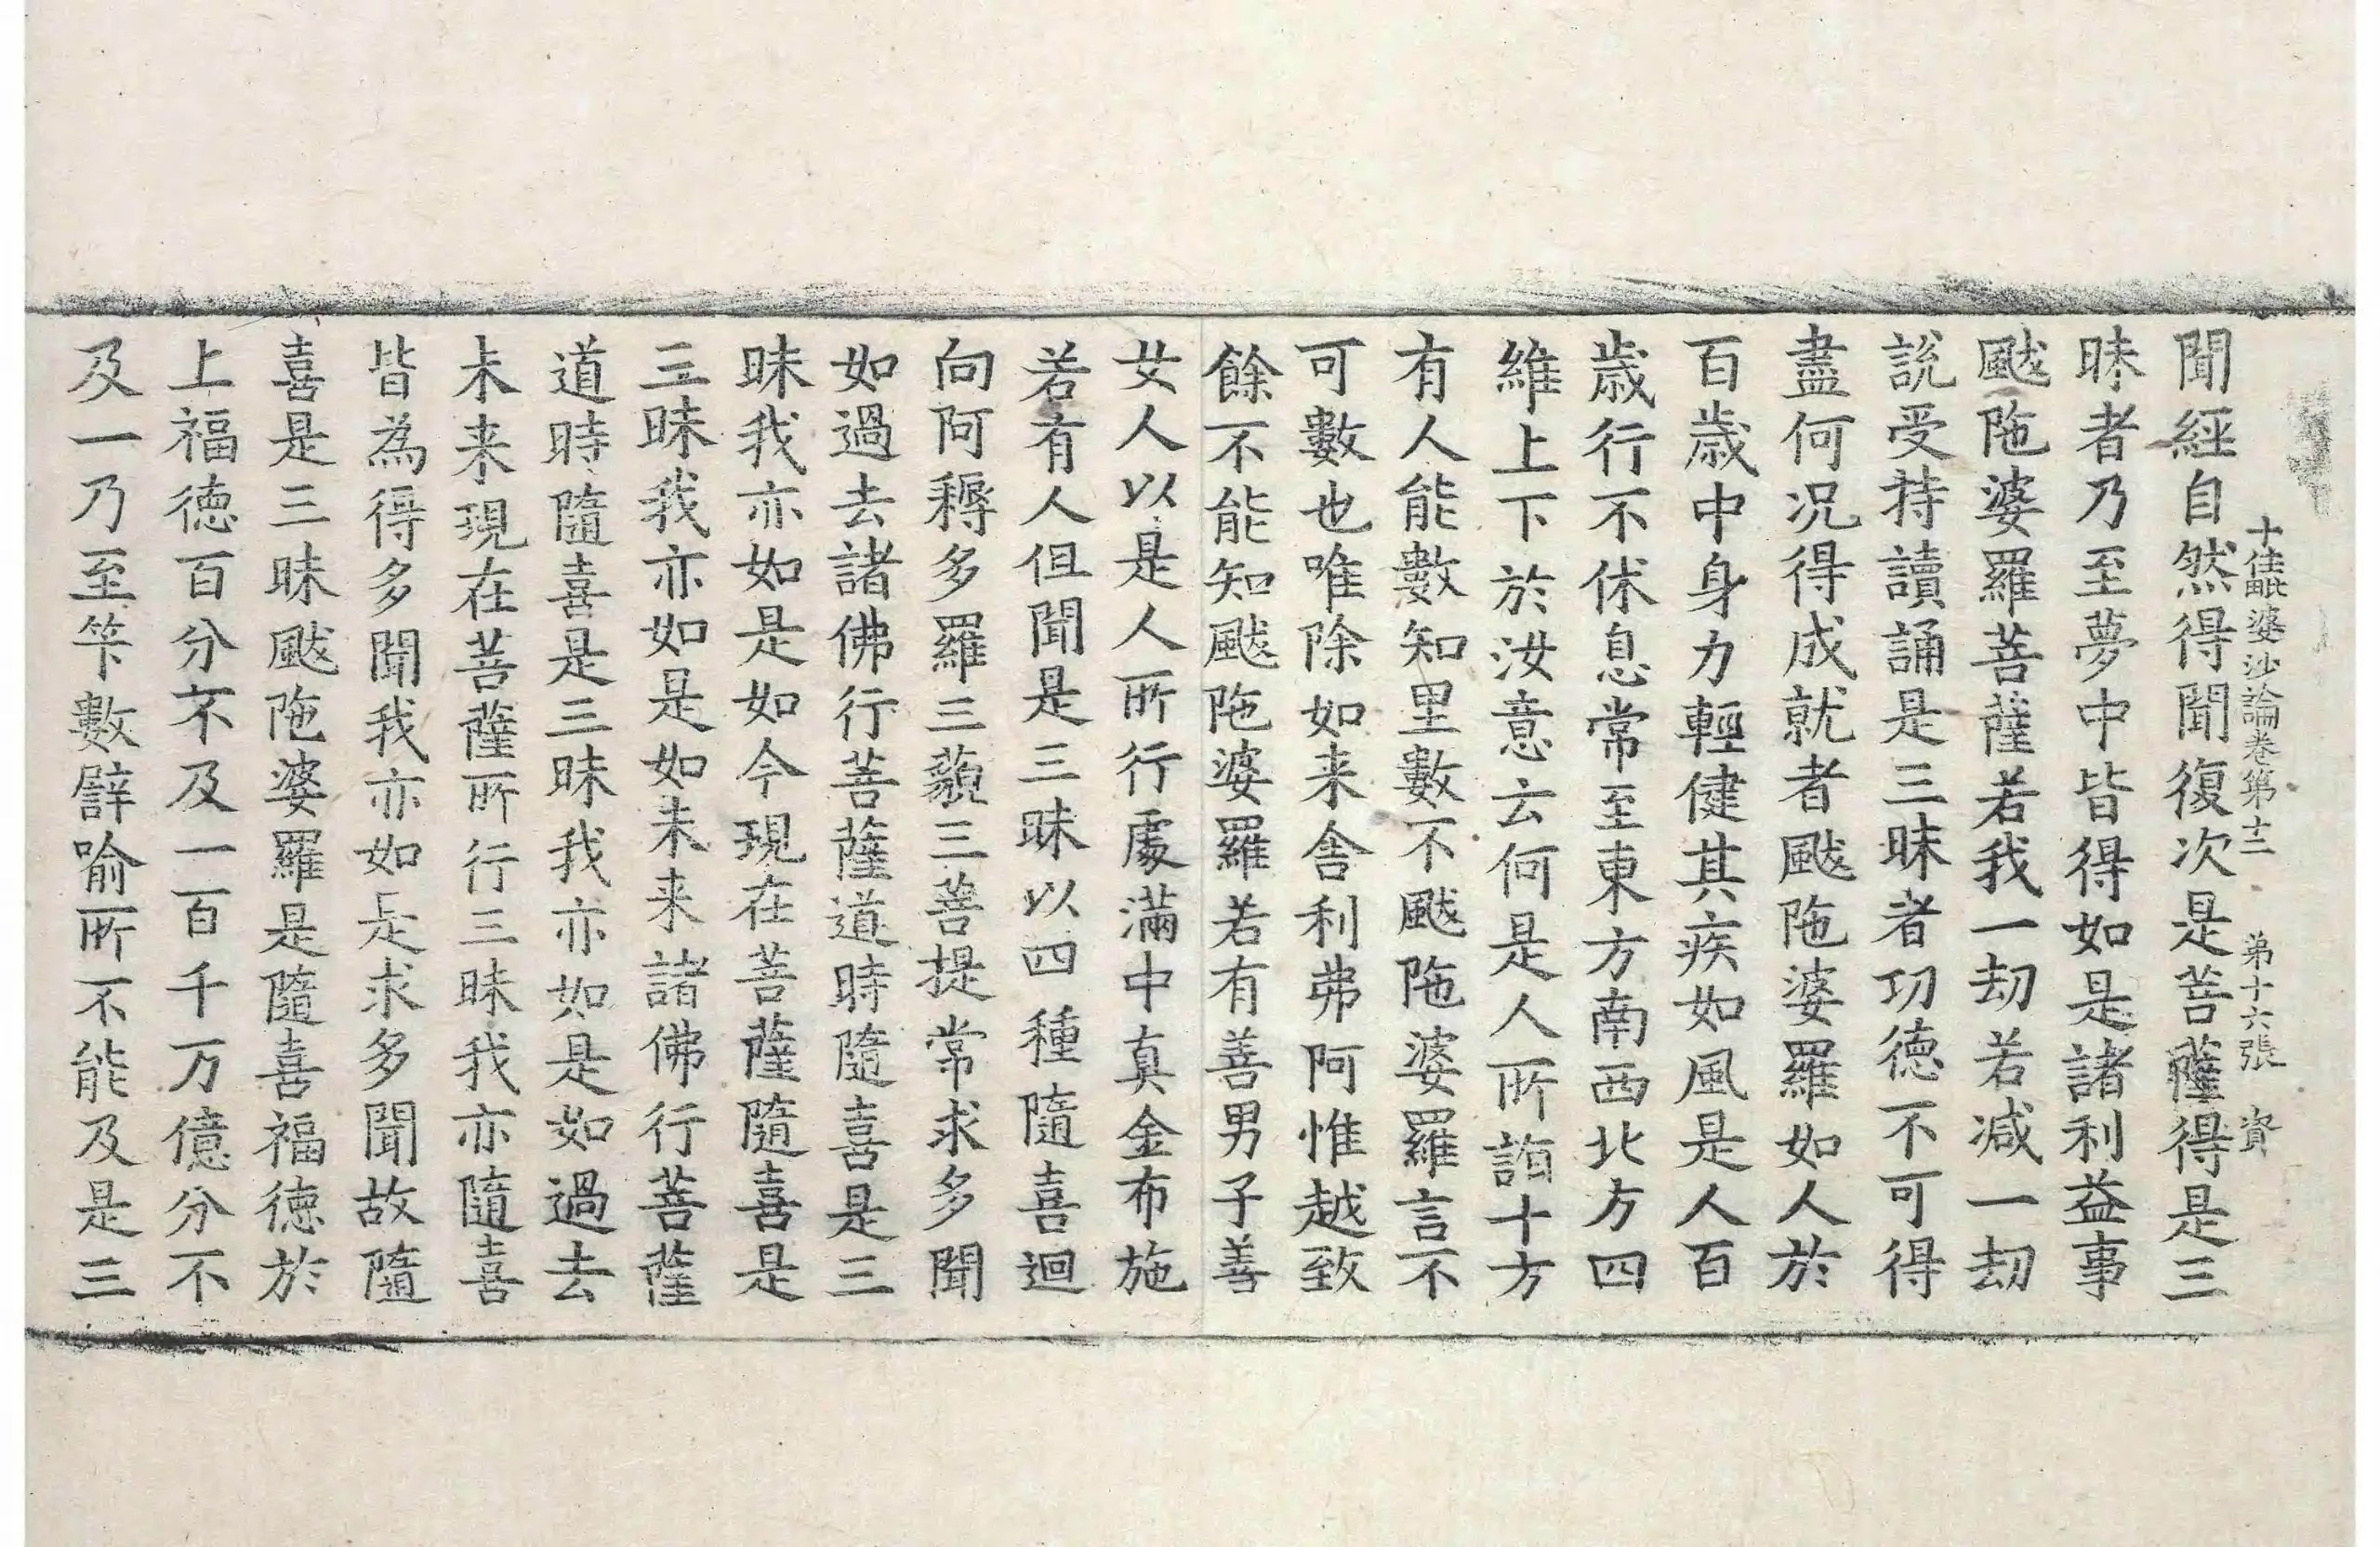 十住毗婆沙論卷第十二 第十六張 資
聞經自然得聞復次是菩薩得是三
昧者乃至夢中皆得如是諸利益事
颰陁婆羅菩薩若我一劫若减一劫
說受持讀誦是三昧者功德不可得
盡何况得成就者颰陁婆羅如人於
百歳中身力輕健其疾如風是人百
歳行不休息常至東方南西北方四
維上下於汝意云何是人所詣十方
有人能數知里數不颰陁婆羅言不
可數也唯除如来舎利弗阿惟越致
餘不能知颰陁婆羅若有善男子善
女人以是人所行處滿中真金布施
若有人但聞是三昧以四種隨喜迴
向阿耨多羅三藐三菩提常求多聞
如過去諸佛行菩薩道時隨喜是三
昧我亦如是如今現在菩薩隨喜是
三昧我亦如是如未来諸佛行菩薩
道時隨喜是三昧我亦如是如過去
未来現在菩薩所行三昧我亦隨喜
皆為得多聞我亦如是求多聞故隨
喜是三昧颰陁婆羅是隨喜福德於
上福德百分不及一百千万億分不
及一乃至筭數譬喻所不能及是三